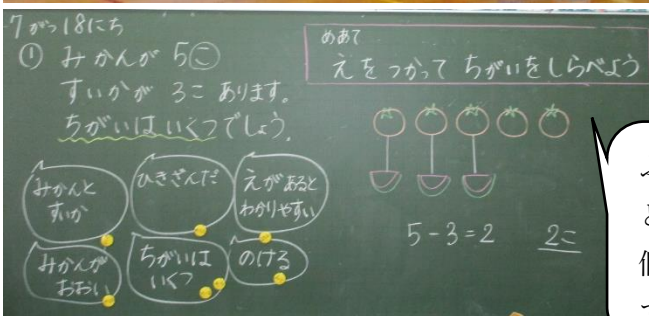 7がつ18にち
① みかんが 5こ
すいかが 3こ あります。
ちがいは いくつでしょう。
めあて
えを つかって ちがいをしらべよう
みかんと
すいか
ひきざんだ
えがあると
わかりやすい
みかんが
おおい
ちがいは
いくつ
のける
5-3=2 2こ